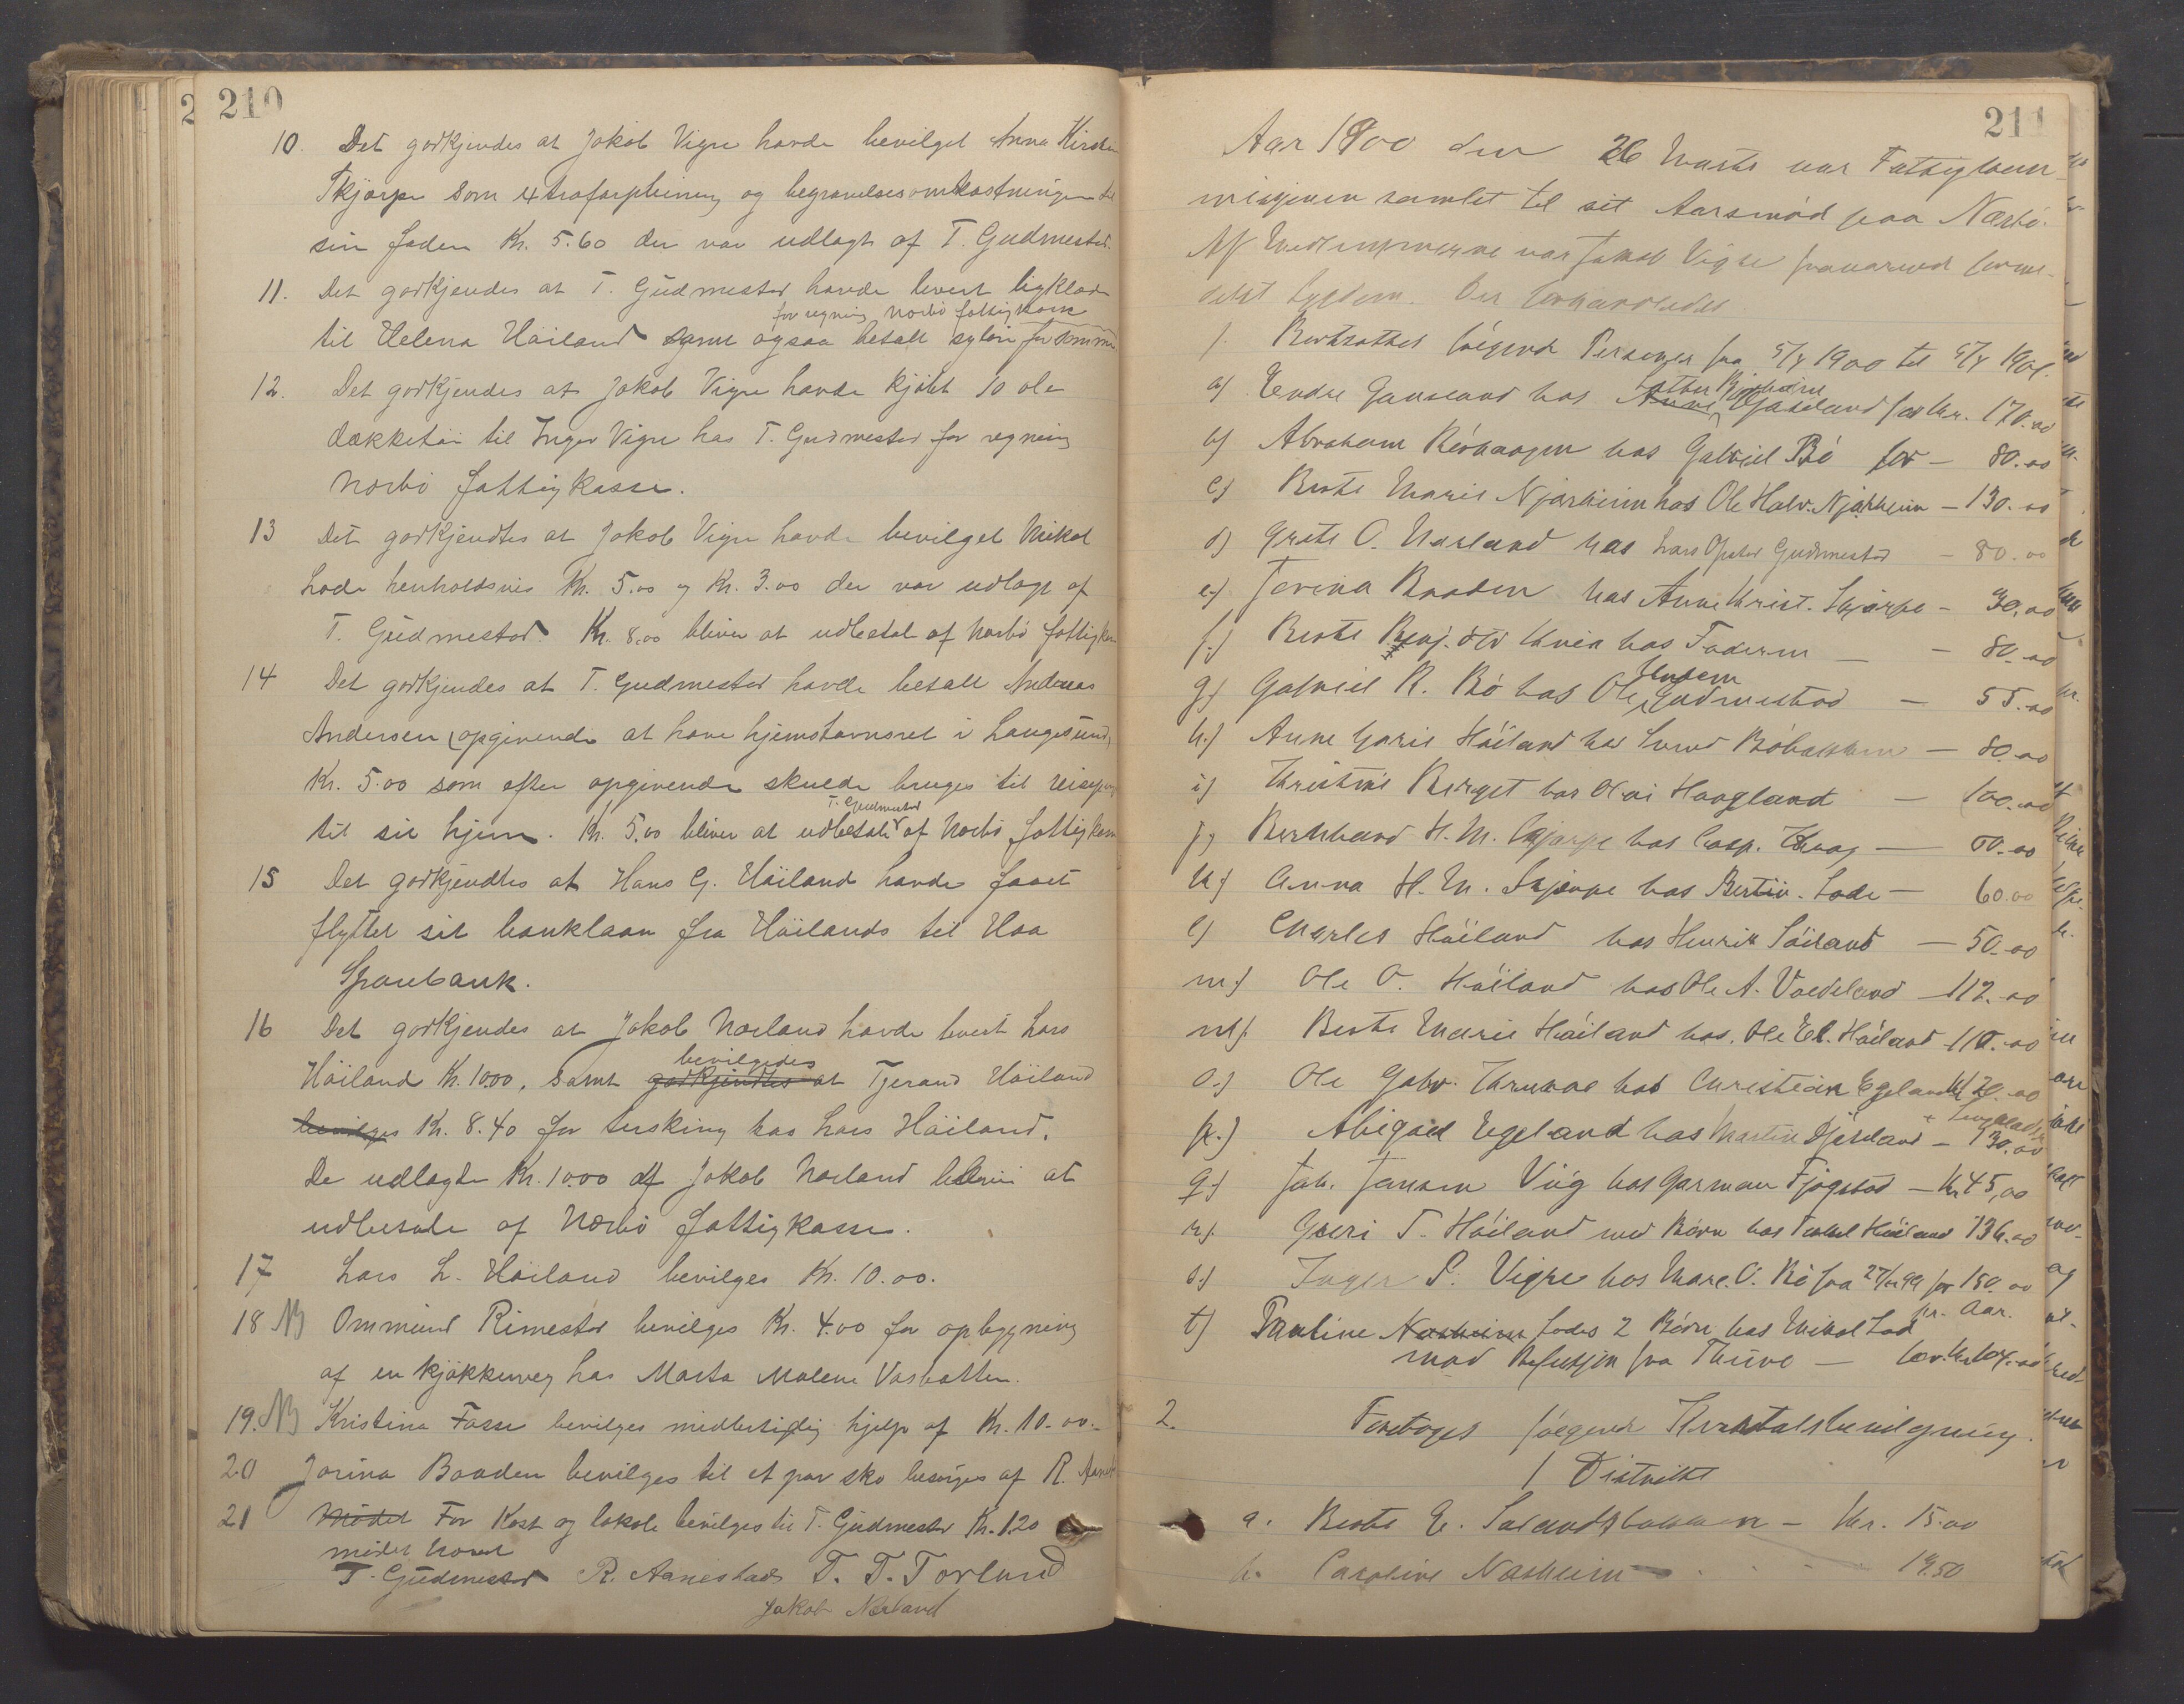 210
10. Det godkjendes at Jakob Vigre havde bevilget Anna Kirstine
Skjærpe som extraforpleining og begravelsesomkostninger til
sin Fader Kr. 5.60 der var udlagt af T. Gudmestad.
11. Det godkjendes at T. Gudmestad havde levert ligklæder
for regning Nærbø fattigkasse
til Helena Høiland samt ogsaa betalt syløn for samme
12. Det godkjendes at Jakob Vigre havde kjøbt 10 ale
dækketøi til Inger Vigre hos T. Gudmestad for regning
Nærbø fattigkasse.
13 Det godkjendtes at Jakob Vigre havde bevilget Mikal
Lode henholdsvis Kr. 5.00 og Kr. 3.00 der var udlagt af
T. Gudmestad. Kr. 8.00 bliver at udbetale af Nærbø fattigkasse
14 Det godkjendes at T. Gudmestad havde betalt Andreas
Andersen (opgivende at have hjemstavnsret i Langesund)
Kr. 5.00 som efter opgivende skulde bruges til reisepenge
T. Gudmestad
til sit hjem. Kr. 5.00 bliver at udbetale af Nærbø fattigkasse
15 Det godkjendtes at Hans G. Høiland havde faaet
flyttet sit banklaan fra Høilands til Haa
Sparebank.
16 Det godkjendes at Jakob Nærland havde levert Lars
bevilgedes
Høiland Kr. 10.00, samt godkjendtes at Tjerand Høiland
bevilges Kr. 8.40 for tærsking hos Lars Høiland.
De udlagte Kr. 10.00 af Jakob Nærland bliver at
udbetale af Nærbø fattigkasse.
17 Lars L. Høiland bevilges Kr. 10.00.
18 NB Ommund Rimestad bevilges Kr. 4.00 for opbygning
af en kjøkkenvæg hos Marta Malene Vasbakken.
19. NB Kristina Fosse bevilges midlertidig hjelp af Kr. 10.00.
20 Jorina Baaden bevilges til et par sko besørges af R. Aanestad
21 Mødet For Kost og lokale bevilges til T. Gudmestad Kr. 1.20
mødet hævet
T. Gudmestad R. Aanestad T. T. Torland
Jakob Nærland
211
Aar 1900 den 26 Marts var Fattigkom-
misjonen samlet til sit Aarsmød paa Nærbø.
Af Medlemmerne var Jakob Vigre fraværend forme-
delst Sygdom. Der forhandledes
1. Bortsattes følgende Personer fra 5/4 1900 til 5/4 1901.
a) Endre Gauseland hos Anne Gaseland for Kr. 170.00
b) Abraham Rørhaagen hos Gabriel Bø for - 80.00
c) Berte Marie Njærheim hos Ole Halv. Njærheim - 130.00
d) Grete O. Narland hos Lars Opsted Gudmestad - 80.00
e) Jorina Baaden hos Anne Krist. Skjærpe - 30.00
f.) Berte Benj. dtr Kvia hos Faderen - 80.00
g) Gabriel R. Bø hos Ole Gudmestad - 55.00
h.) Anne Garie Høiland hos Svend Bøbakken - 80.00
i) Kristine Berget hos Nai Haagland - 100.00
j) Bernhard H. M. Skjærpe hos Casp. Skrag - 00.00
k) Anna H. M. Skjærpe hos Bertin. Lode - 60.00
l) Charles Høiland hos Henrik Søiland - 50.00
m) Ole O. Høiland hos Ole A. Vodeland - 112.00
n). Berte Marie Høiland hos. Ole El. Høiland - 110.00
o.) Ole Gabr. hos Christian Egeland 20.00
p.) Abigael Egeland hos Martin Djæseland - 130.00
q.) Jak. Jansen Viig hos Garman Fjogstad - Kr 45,00
r). Guri T. Høiland med Børn hos Høiland 136.00
s.) Inger P. Vigre hos Mare. O. Bø fra 27/ 99 for 150.00
pr. Aar.
t) Pauline Næsheims Lodes 2 Børn hos Mikal Lod
mod Refusjon fra Thime - Kr. 104.00
2. Foretoges følgende Kvartalsbevilgning.
1 Distrikt
a. Berte E. - Kr. 15.00
b. Caroline Næsheim - 19.50